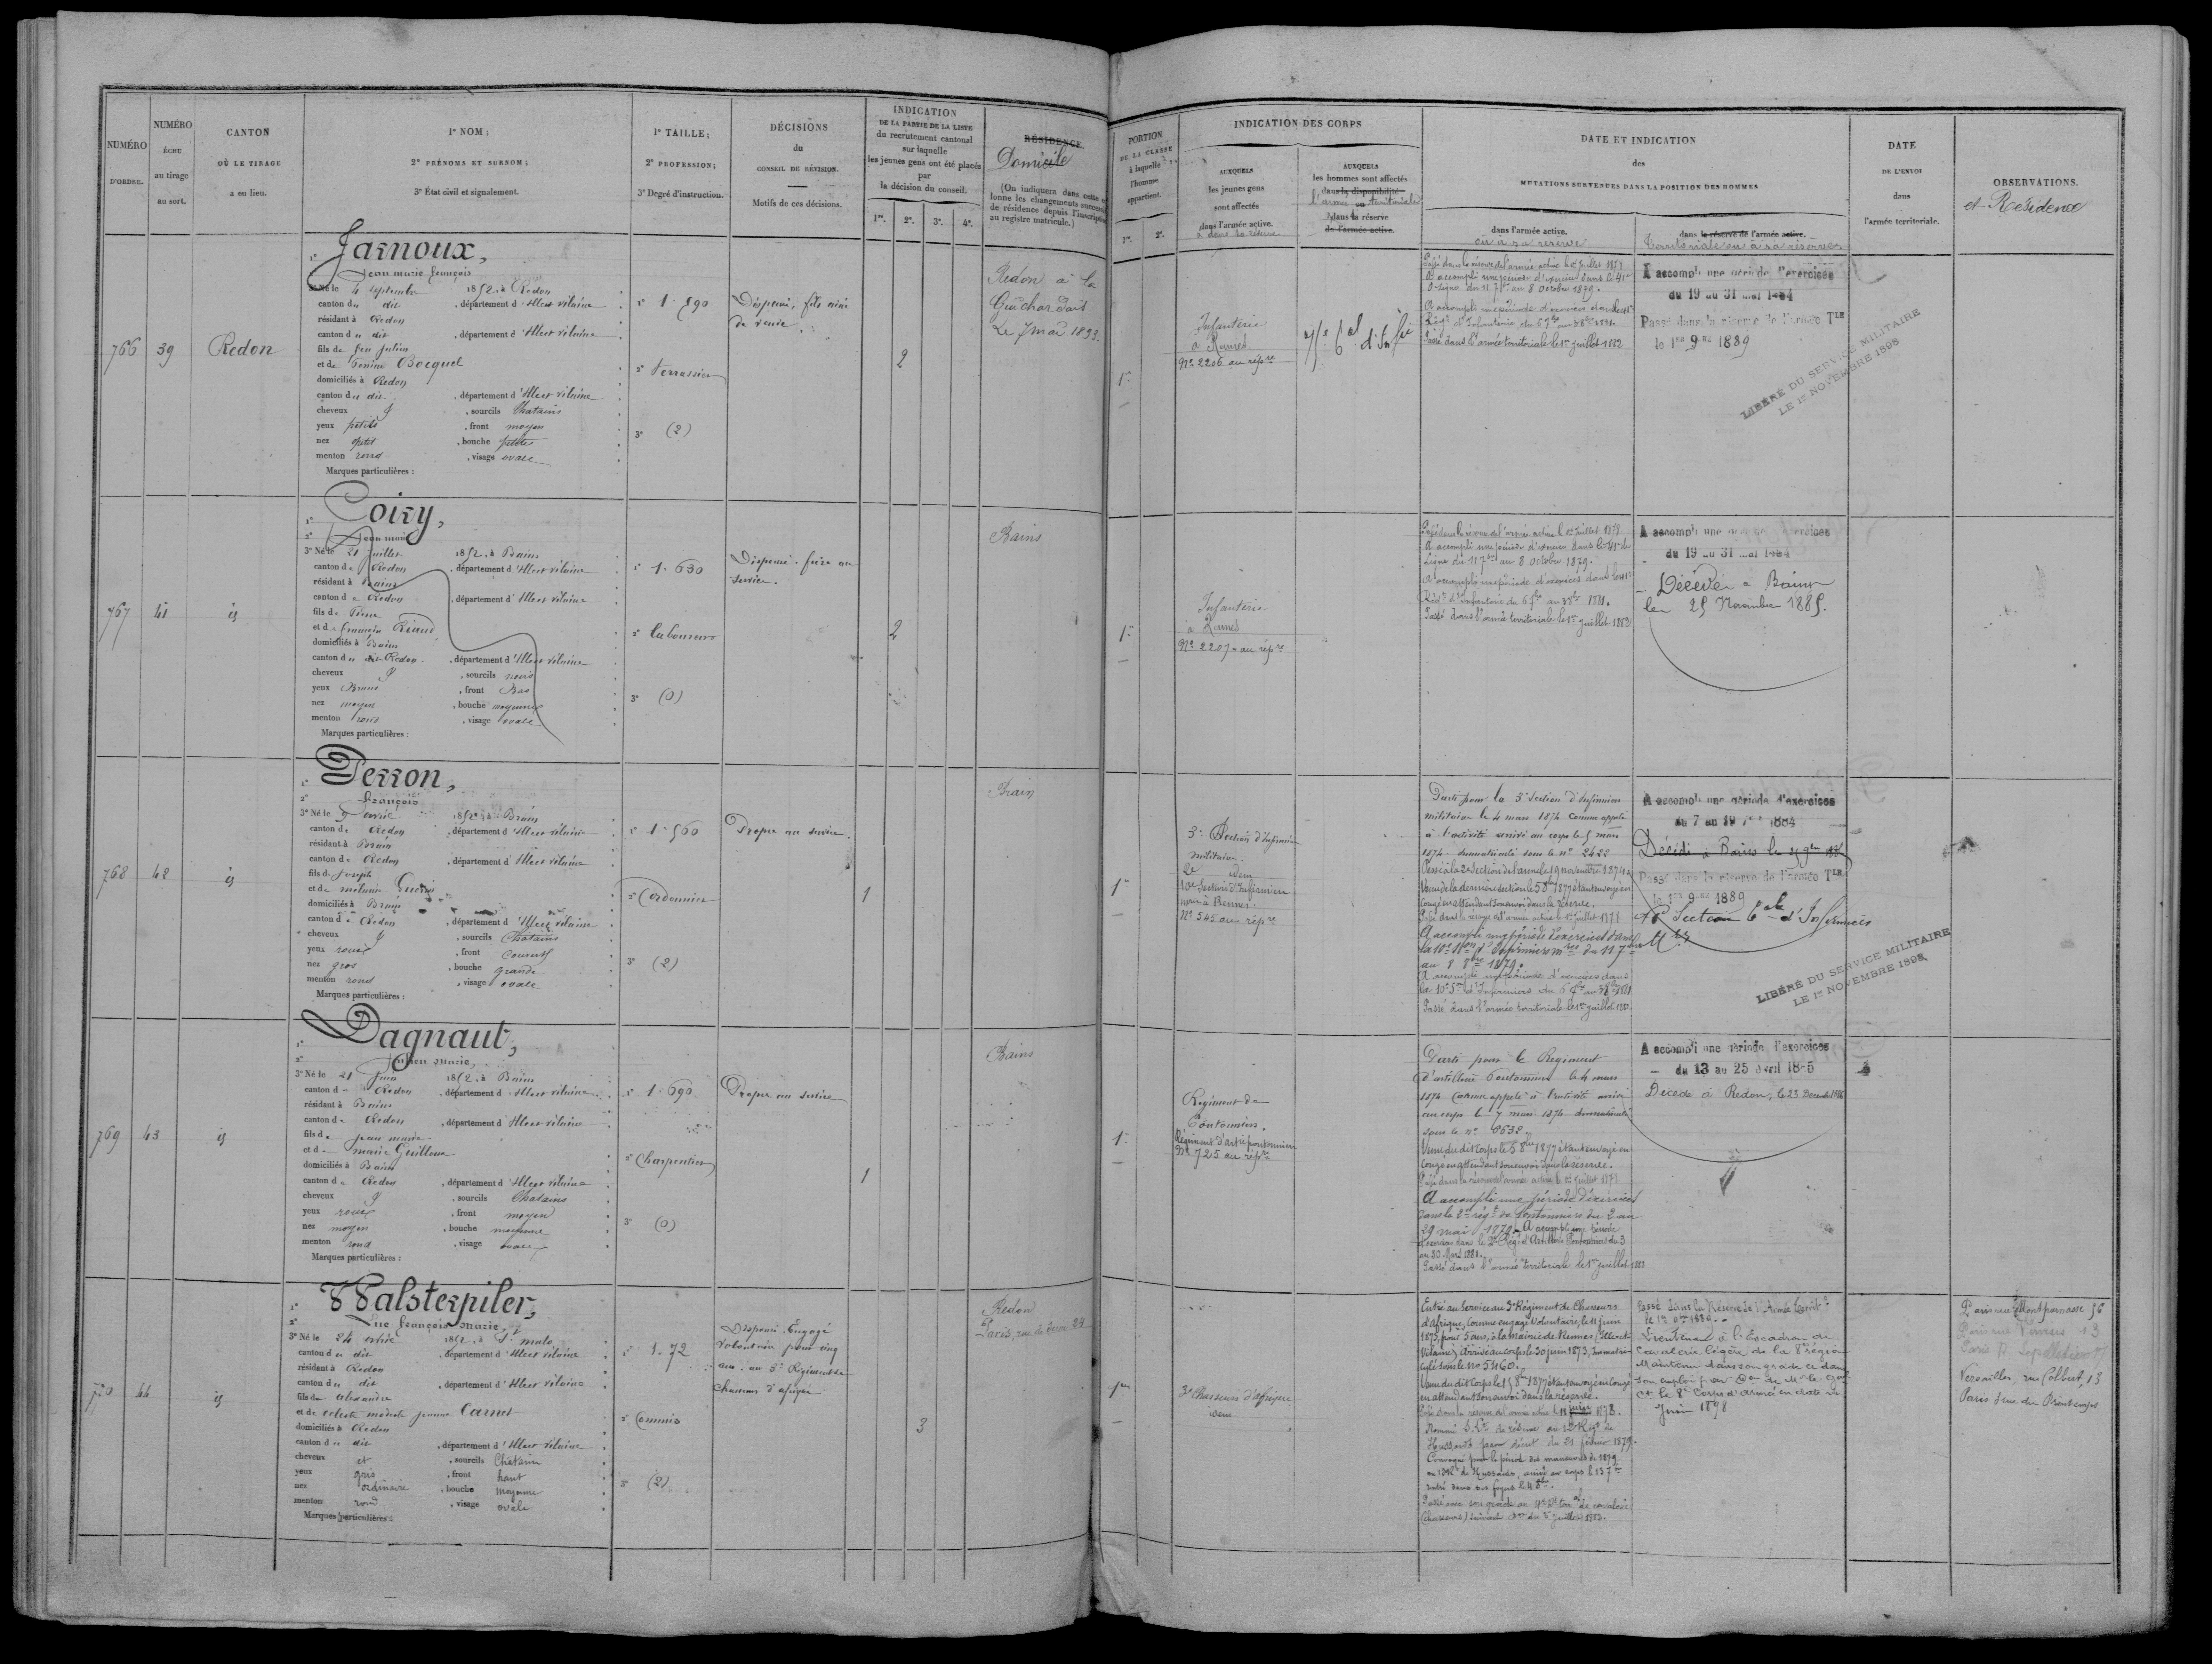 NUMÉRO
D'ORDRE.
NUMÉRO
ÉCHU
au tirage
au sort.
CANTON
OÙ LE TIRAGE
a eu lieu.
1° NOM;
2° PRÉNOMS ET SURNOM;
3° État civil et signalement.
1° TAILLE;
2° PROFESSION;
3° Degré d'instruction.
DÉCISIONS
du
CONSEIL DE RÉVISION.
Motifs de ces décisions.
INDICATION
DE LA PARTIE DE LA LISTE
du recrutement cantonal
sur laquelle
les jeunes gens ont été placés
par
la décision du conseil.
1re. 2e. 3e. 4e.
RÉSIDENCE
Domicile
(On indiquera dans cette
lonne les changements
de résidence depuis l'inscription
au registre matricule.)
PORTION
DE LA CLASSE
à laquelle
l'homme
appartient.
1re. 2e.
INDICATION DES CORPS
AUXQUELS
les jeunes gens
sont affectés
dans l'armée active.
AUXQUELS
les hommes sont affectés
dans la disponibilité
ou
l'armée territoriale
dans la réserve
de l'armée active.
DATE ET INDICATION
des
MUTATIONS SURVENUES DANS LA POSITION DES HOMMES
dans l'armée active.
ou à sa réserve
dans la réserve de l'armée active.
Territoriale ou à sa réserve
DATE
DE L'ENVOI
dans
l'armée territoriale.
OBSERVATIONS.
et Résidence
766 39 Redon
Jarnoux,
Jean marie françois
3° Né le 4 septembre 1852, à Redon
canton du dit, département d'Ille et vilaine
résidant à Redon
canton du dit, département d'Ille et vilaine
fils de feu Julien
et de Bocquel
domiciliés à Redon
canton du dit, département d'Ille et vilaine
cheveux, sourcils Chatains
yeux petits, front moyen
nez petit, bouche petite
menton rond, visage ovale
Marques particulières :
1. 590
2° terrassier
3° (2)
Dispensé, fils ainé
de veuve.
2
Redon à la
Guichardais
Le 7 mai 1893
1re
Infanterie
à Rennes
N° 2206 au répre
Passé dans la réserve de l'armée active le 1er juillet 1878
A accompli une période d'exercices dans le 41e
de Ligne du 11 7bre au 8 Octobre 1879.
A accompli une période d'exercices dans le 41e
Régt d'Infanterie du 6 7bre au 3 8bre 1881.
Passé dans l'armée territoriale le 1er juillet 1882
A accompli une période d'exercices
du 19 au 31 mai 1884
Passé dans la réserve de l'armée TLE
le 1er 9bre 1889
LIBÉRÉ DU SERVICE MILITAIRE
LE 1er NOVEMBRE 1898
767 41 id
Coiry,
Jean marie
3° Né le 21 Juillet 1852, à Bains
canton de Redon, département d'Ille et vilaine
résidant à Bains
canton de Redon, département d'Ille et vilaine
fils de Pierre
et de françoise Riaud
domiciliés à Bains
canton du dit Redon, département d'Ille et vilaine
cheveux, sourcils noirs
yeux Bruns, front Bas
nez moyen, bouche moyenne
menton rond, visage ovale
Marques particulières :
1. 630
2° laboureur
3° (0)
Dispensé. frère au
service.
2
Bains
1re
Infanterie
à Rennes
N° 2207 au répre
Passé dans la réserve de l'armée active le 1er juillet 1878
A accompli une période d'exercices dans le 41e de
Ligne du 11 7bre au 8 octobre 1879.
A accompli une période d'exercices dans le 41e
Régt d'Infanterie du 6 7bre au 3 8bre 1881.
Passé dans l'armée territoriale le 1er juillet 1882
A accompli une période d'exercices
du 19 au 31 mai 1884
Décédé à Bains
le 25 Novembre 1885.
768 42 id
Perron,
François
3° Né le 9 avril 1852, à Brain
canton de Redon, département d'Ille et vilaine
résidant à Brain
canton de Redon, département d'Ille et vilaine
fils de Joseph
et de mélanie
domiciliés à Brain
canton de Redon, département d'Ille et vilaine
cheveux, sourcils Chatains
yeux roux, front couvert
nez gros, bouche grande
menton rond, visage ovale
Marques particulières :
1. 560
2° Cordonnier
3° (2)
Propre au service.
1
Brain
1re
3e Section d'Infirmiers
militaires.
2e idem
10e Section d'Infirmiers
mres à Rennes
N° 545 au répre
Parti pour la 3e Section d'Infirmiers
militaires le 4 mars 1874 comme appelé
à l'activité arrivé au corps le 5 mars
1874. Immatriculé sous le n° 2422
Passé à la 2e Section de l'arme le 19 novembre 1874.
Venu de la dernière section le 5 8bre 1877 étant envoyé en
congé en attendant son envoi dans la réserve.
Passé dans la réserve de l'armée active le 1er juillet 1878
A accompli une période d'exercices dans
la 10e Son d'Infirmiers mres du 11 7bre
au 8 8bre 1879.
A accompli une période d'exercices dans
la 10e Son d'Infirmiers du 6 7bre au 3 8bre 1881
Passé dans l'armée territoriale le 1er juillet 1882
A accompli une période d'exercices
du 7 au 19 1884
Décédé à Bains le
Passé dans la réserve de l'armée TLE
le 1er 9bre 1889
10e Section d'Infirmiers
Mres
LIBÉRÉ DU SERVICE MILITAIRE
LE 1er NOVEMBRE 1898
769 43 id
Dagnaut,
Julien Marie
3° Né le 21 Juin 1852, à Bains
canton de Redon, département d'Ille et vilaine
résidant à Bains
canton de Redon, département d'Ille et vilaine
fils de jean marie
et de marie Guilloux
domiciliés à Bains
canton de Redon, département d'Ille et vilaine
cheveux, sourcils Chatains
yeux roux, front moyen
nez moyen, bouche moyenne
menton rond, visage ovale
Marques particulières :
1. 690
2° Charpentier
3° (0)
Propre au service
1
Bains
1re
Régiment de
Pontonniers.
Régiment d'artie pontonniers
N° 725 au répre
Parti pour le Régiment
d'artillerie Pontonniers le 4 mars
1874 Comme appelé à l'activité arrivé
au corps le 7 mars 1874 immatriculé
sous le n° 8638
Venu du dit Corps le 5 8bre 1877 étant envoyé en
congé en attendant son envoi dans la réserve.
Passé dans la réserve de l'armée active le 1er juillet 1878
A accompli une période d'exercices
dans le 2e régt de Pontonniers du 2 au
29 mai 1879. A accompli une période
d'exercices dans le 2e Régt d'Artillerie Pontonniers du 3
au 30 Mars 1881.
Passé dans l'armée territoriale le 1er juillet 1882
A accompli une période d'exercices
du 13 au 25 avril 1885
Décédé à Redon, le 23 Décembre 1886
770 44 id
Walsterpiler,
Luc françois Marie,
3° Né le 24 avril 1852, à St malo
canton du dit, département d'Ille et vilaine
résidant à Redon
canton du dit, département d'Ille et vilaine
fils de alexandre
et de celeste modeste jeanne Carnet
domiciliés à Redon
canton du dit, département d'Ille et vilaine
cheveux et, sourcils Châtains
yeux gris, front haut
nez ordinaire, bouche moyenne
menton rond, visage ovale
Marques particulières :
1. 72
2° Commis
3° (2)
Dispensé. Engagé
volontaire pour cinq
ans au 3e Régiment de
chasseurs d'afrique
3
Redon
Paris, rue de 24
1re
3e Chasseurs d'Afrique
idem
Entré au Service au 3e Régiment de Chasseurs
d'Afrique, Comme engagé Volontaire, le 11 juin
1873, pour 5 ans, à la Mairie de Rennes (Ille et
Vilaine). Arrivé au corps le 30 juin 1873, immatri-
culé sous le N° 5460.
Venu du dit Corps le 15 8bre 1877 étant envoyé en congé
en attendant son envoi dans la réserve.
Passé dans la réserve de l'armée active le 11 juin 1878.
Nommé S. Lt de réserve au 12e Régt de
Hussards par décret du 21 février 1879.
Convoqué pour la période des manoeuvres de 1879
au 12e Rt de Hussards, arrivé au corps le 13 7bre
rentré dans ses foyers le 4 8bre.
Passé avec son grade au 4e Rt terral de cavalerie
(Chasseurs) suivant don du 3 juillet 1883.
Passé dans la Réserve de l'Armée territle
le 1er 9bre 1886.
Lieutenant à l'Escadron de
Cavalerie légère de la 8e région
Maintenu dans son grade et dans
son emploi par don de Mr le Gal
Ct le 8e Corps d'armée en date de
Juin 1898
Paris rue Montparnasse 56
Paris rue 13
Paris R Lepelletier
Versailles, rue Colbert, 13
Paris 3 rue du Printemps